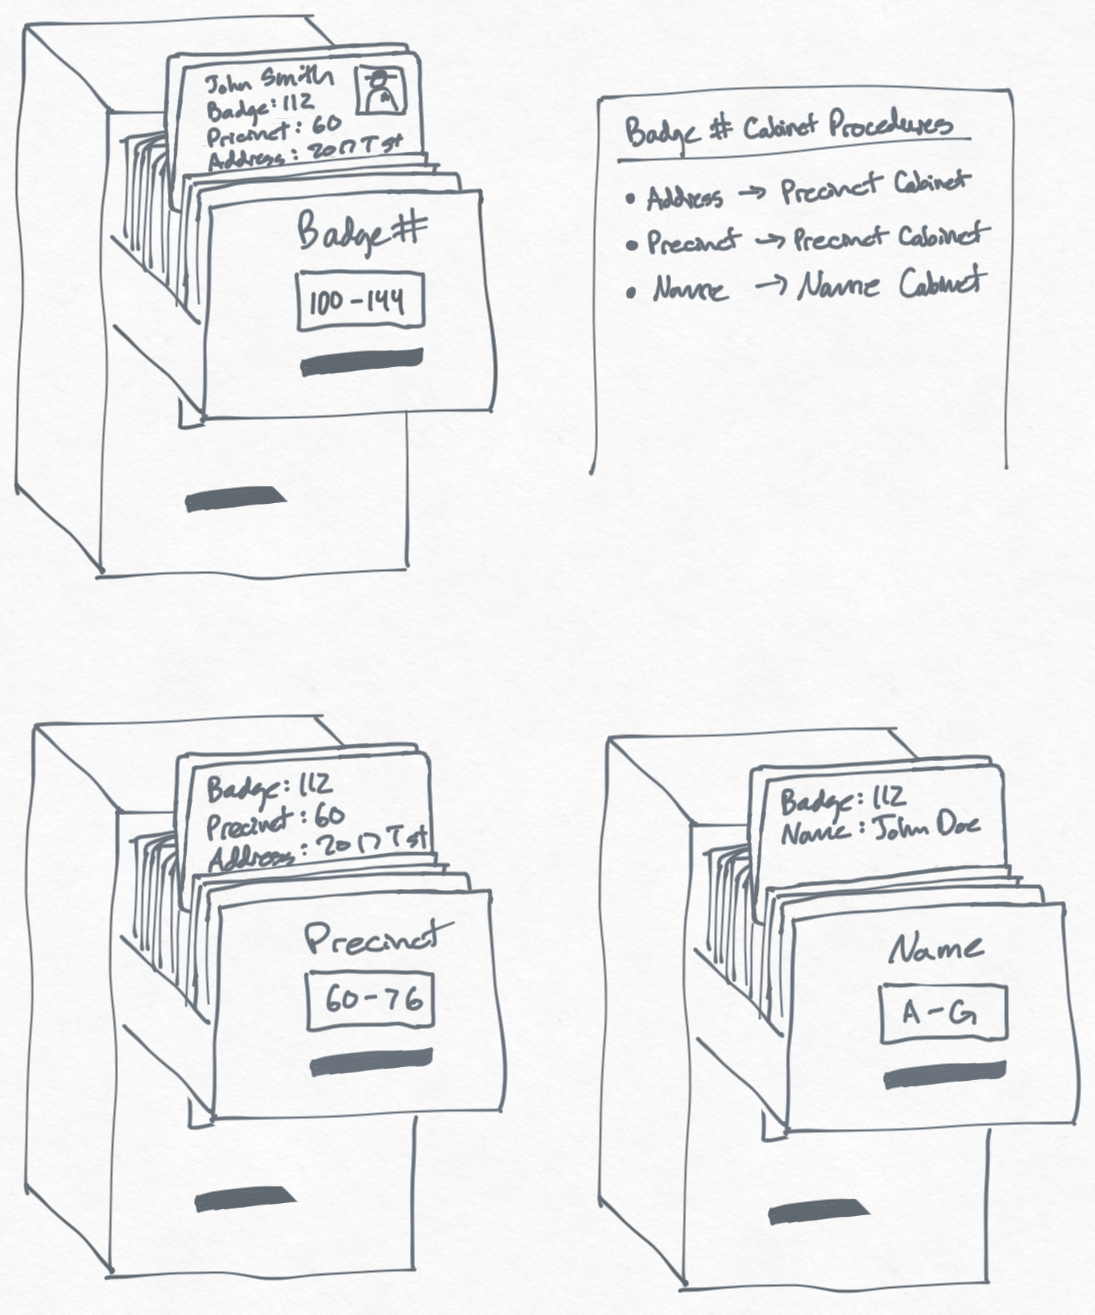 John Smith
Badge: 112
Precinct: 60
Address: 2017 T st
Badge #
100-144
Badge # Cabinet Procedures
• Address → Precinct Cabinet
• Precinct → Precinct Cabinet
• Name → Name Cabinet
Badge: 112
Precinct: 60
Address: 2017 T st
Precinct
60-76
Badge: 112
Name: John Doe
Name
A-G